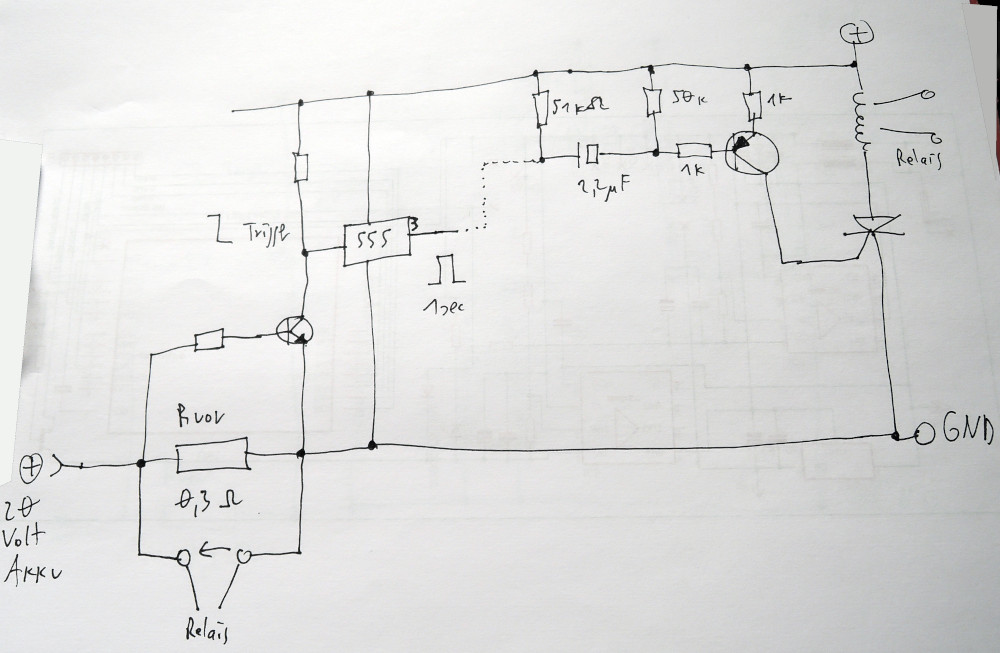 +
51kΩ
50k
1k
Relais
1k
2,2µF
Trigger
555
3
1sec
Rvor
0,3 Ω
+
20
Volt
Akku
GND
Relais